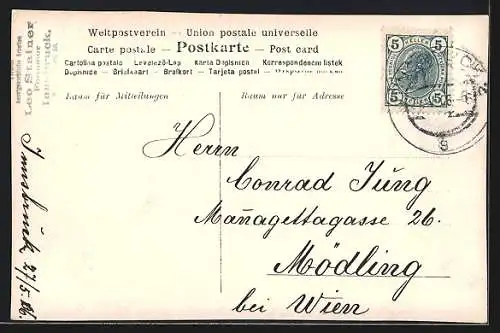 Weltpostverein - Union postale universelle
Carte postale - Postkarte - Post card
Cartolina postale - Levelező-Lap - Karta Dopisnica - Korrespondenzní listek
Dopisnice - Briefkaart - Brefkort - Tarjeta postal
Raum für Mitteilungen
Raum nur für Adresse
Leo Stainer
Innsbruck.
5 HELLER 5
5 5
Herrn
Conrad Jung
Mañagettagasse 26.
Mödling
bei Wien
Innsbruck 27/5.06.